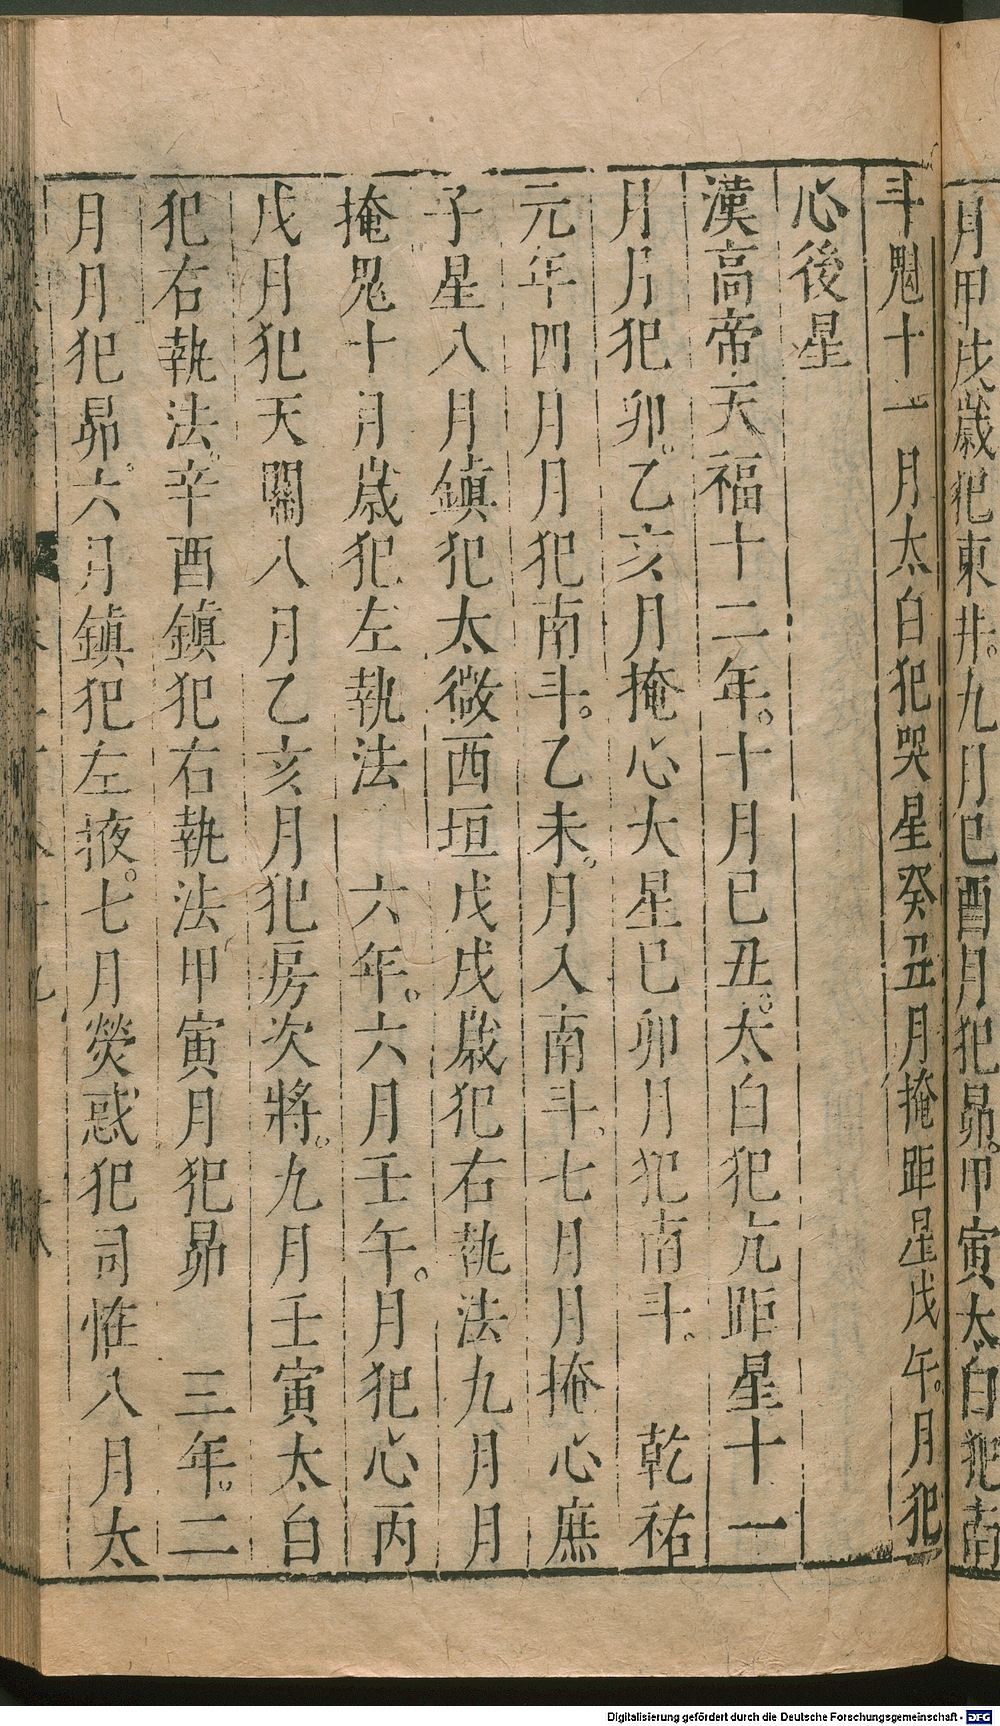 月甲戌歲犯東井。九月己酉月犯昴。甲寅太白犯南
斗魁十一月太白犯哭星癸丑月掩距星戊午。月犯
心後星
漢高帝天福十二年。十月己丑。太白犯亢距星十一
月月犯卯。乙亥月掩心大星己卯月犯南斗。　乾祐
元年四月月犯南斗。乙未。月入南斗。七月月掩心庶
子星八月鎮犯太微西垣戊戌歲犯右執法九月月
掩鬼十月歲犯左執法　六年。六月壬午。月犯心丙
戊月犯天關八月乙亥月犯房次將。九月壬寅太白
犯右執法。辛酉鎮犯右執法甲寅月犯昴　三年。二
月月犯昴。六月鎮犯左掖。七月熒惑犯司恠八月太
Digitalisierung gefördert durch die Deutsche Forschungsgemeinschaft - DFG